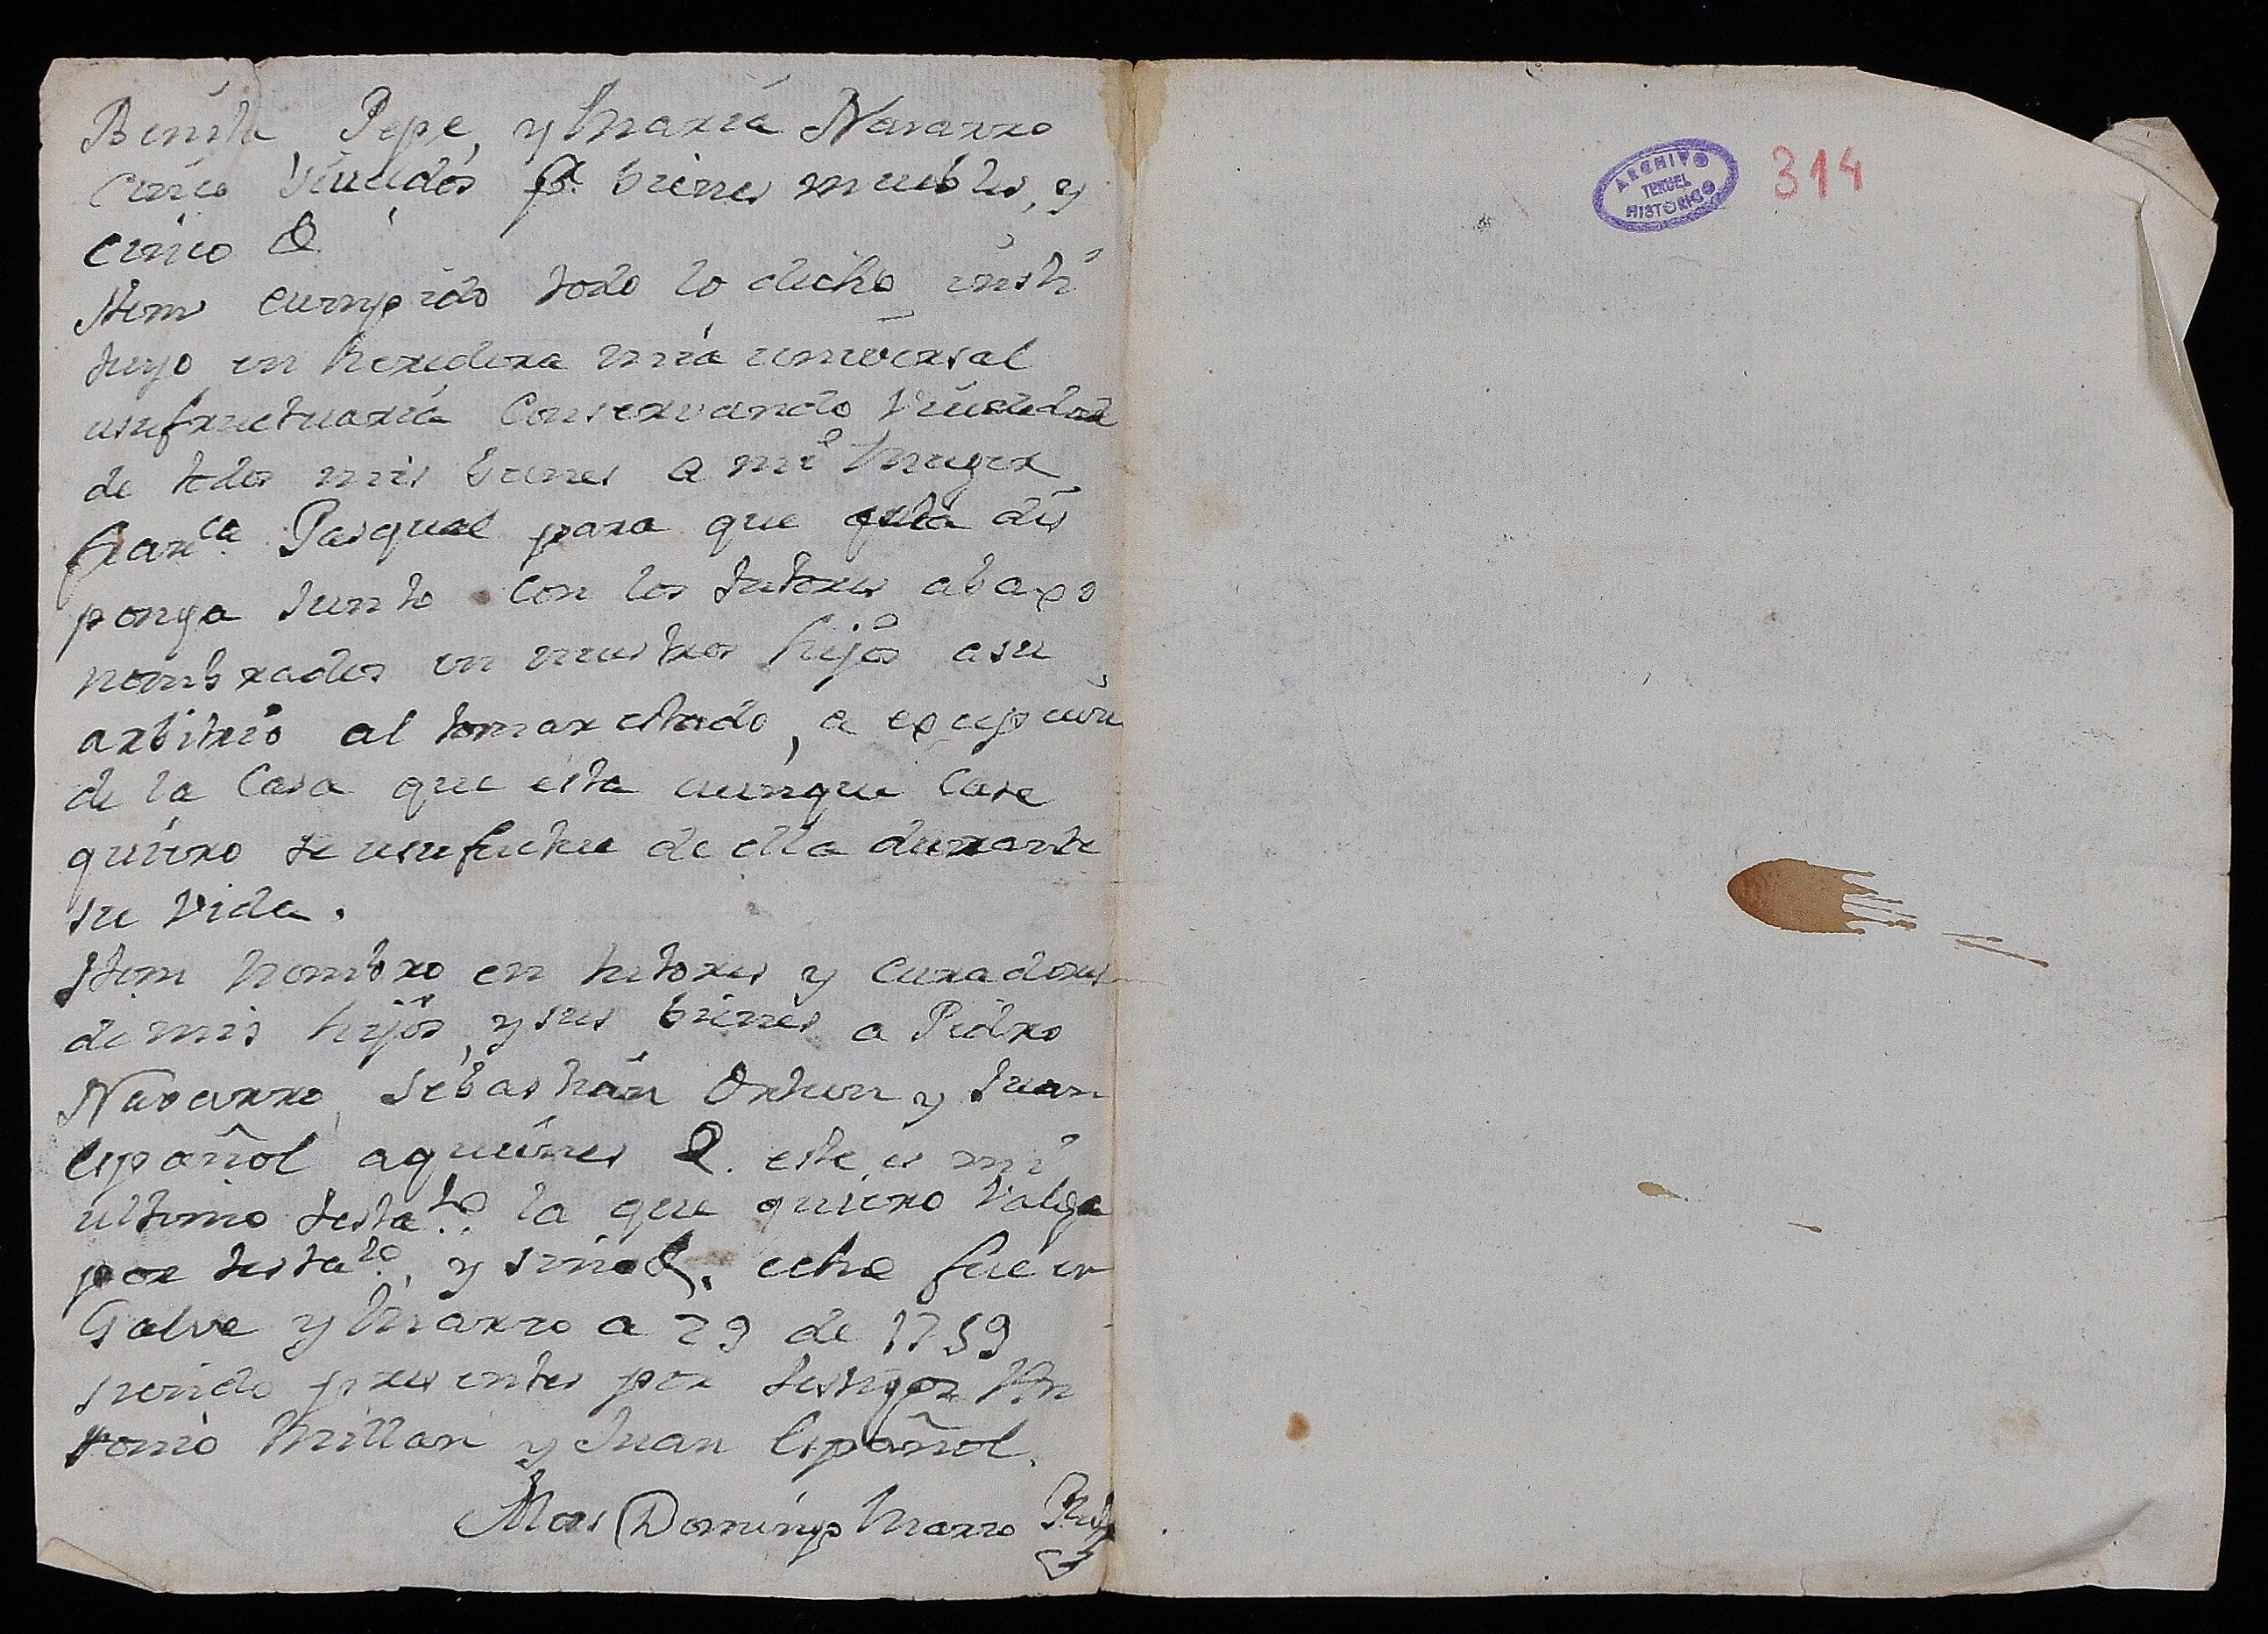 Benita, Pepe, y Maria Navarro
Cinco Sueldos p.r bienes muebles, y
cinco &
Item cumplido todo lo dicho insti
tuyo en heredera mia universal
usufructuaria Conservando Viudedad
de todos mis bienes a mi Muger
fran.ca Pasqual para que esta dis
ponga Junto con los tutores abaxo
nombrados en nuestros hijos a su
arbitrio al tomar estado, a excepcion
de la Casa que esta aunque Case
quiero se usufrutue de ella durante
su vida.
Item Nombro en tutores y curadores
de mis hijos, y sus bienes a Pedro
Navarro, Sebastian Ortun y Juan
Español a quienes &. este es mi
ultimo testa.to la que quiero Valga
por testa.to, y sino &. echo fue en
Galve y Marzo a 29 de 1759
siendo presentes por testigos An
tonio Millan y Juan Español.
Mos Domingo Marzo
ARCHIVO
TERUEL
HISTORICO
314